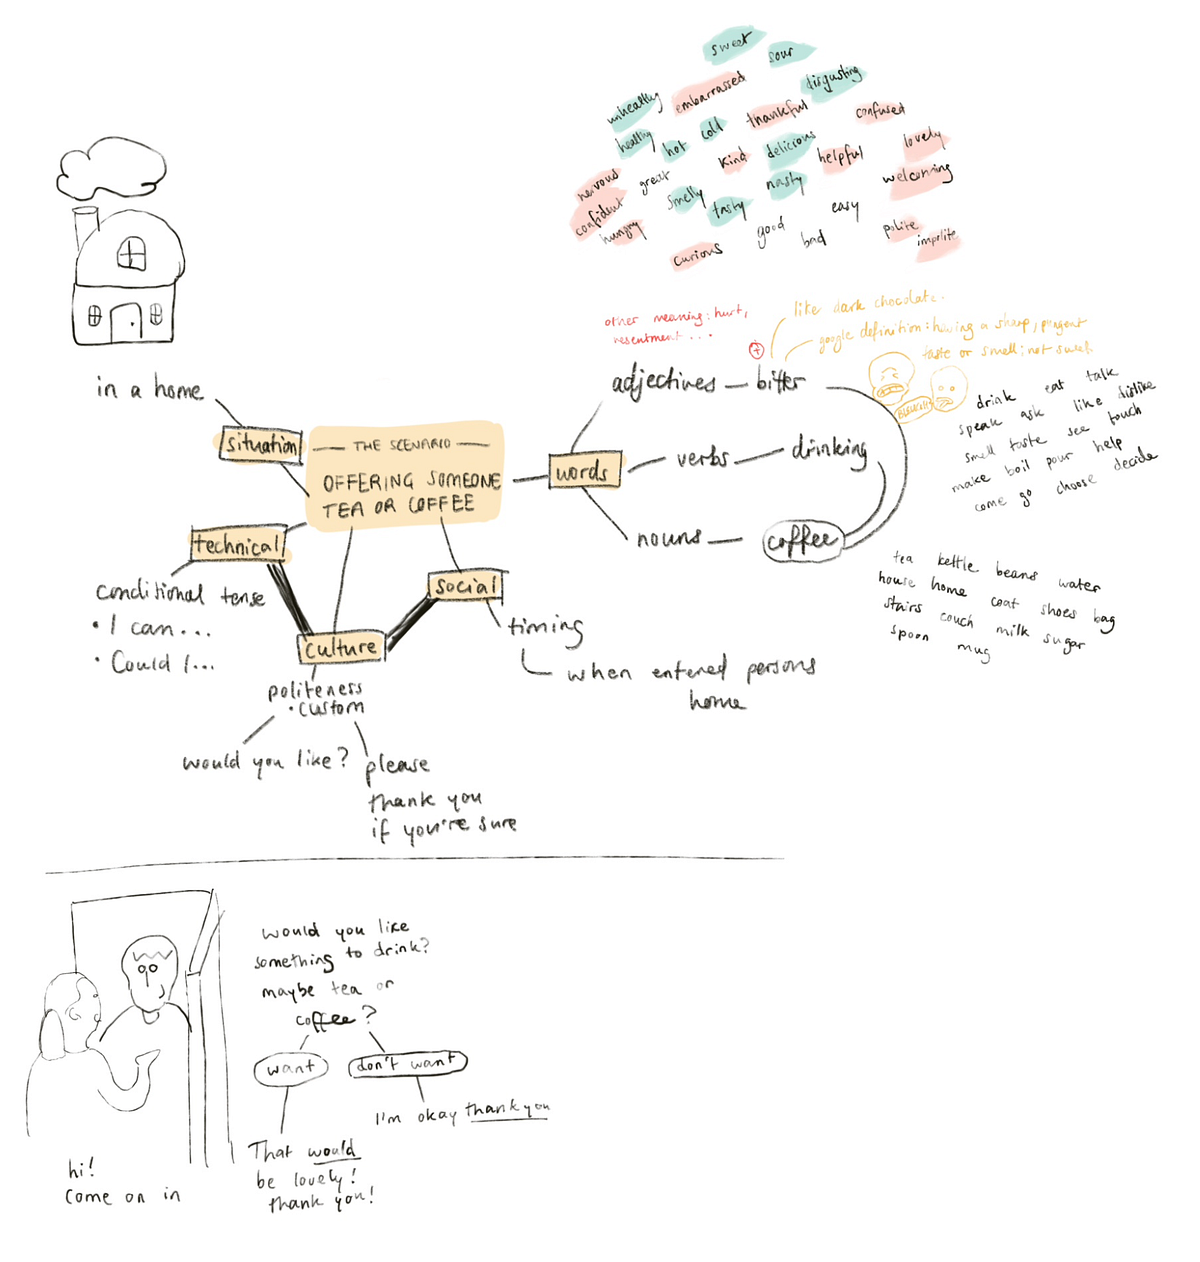 sweet
sour
disgusting
embarrassed
unhealthy
thankful
confused
healthy
hot
cold
kind
delicious
helpful
lovely
nervous
great
smelly
nasty
welcoming
confident
hungry
tasty
good
bad
easy
polite
impolite
curious
other meaning: hurt,
resentment...
like dark chocolate.
google definition: having a sharp, pungent
taste or smell; not sweet
adjectives — bitter
drink eat talk
speak ask like dislike
smell taste see touch
make boil pour help
come go choose decide
in a home
situation
— THE SCENARIO —
OFFERING SOMEONE
TEA OR COFFEE
words
verbs — drinking
nouns — coffee
tea kettle beans water
house home coat shoes bag
stairs couch milk sugar
spoon mug
technical
conditional tense
• I can...
• Could I...
social
timing
when entered persons
home
culture
politeness
• custom
would you like?
please
thank you
if you're sure
would you like
something to drink?
maybe tea or
coffee?
want
don't want
I'm okay thank you
That would
be lovely!
thank you!
hi!
come on in